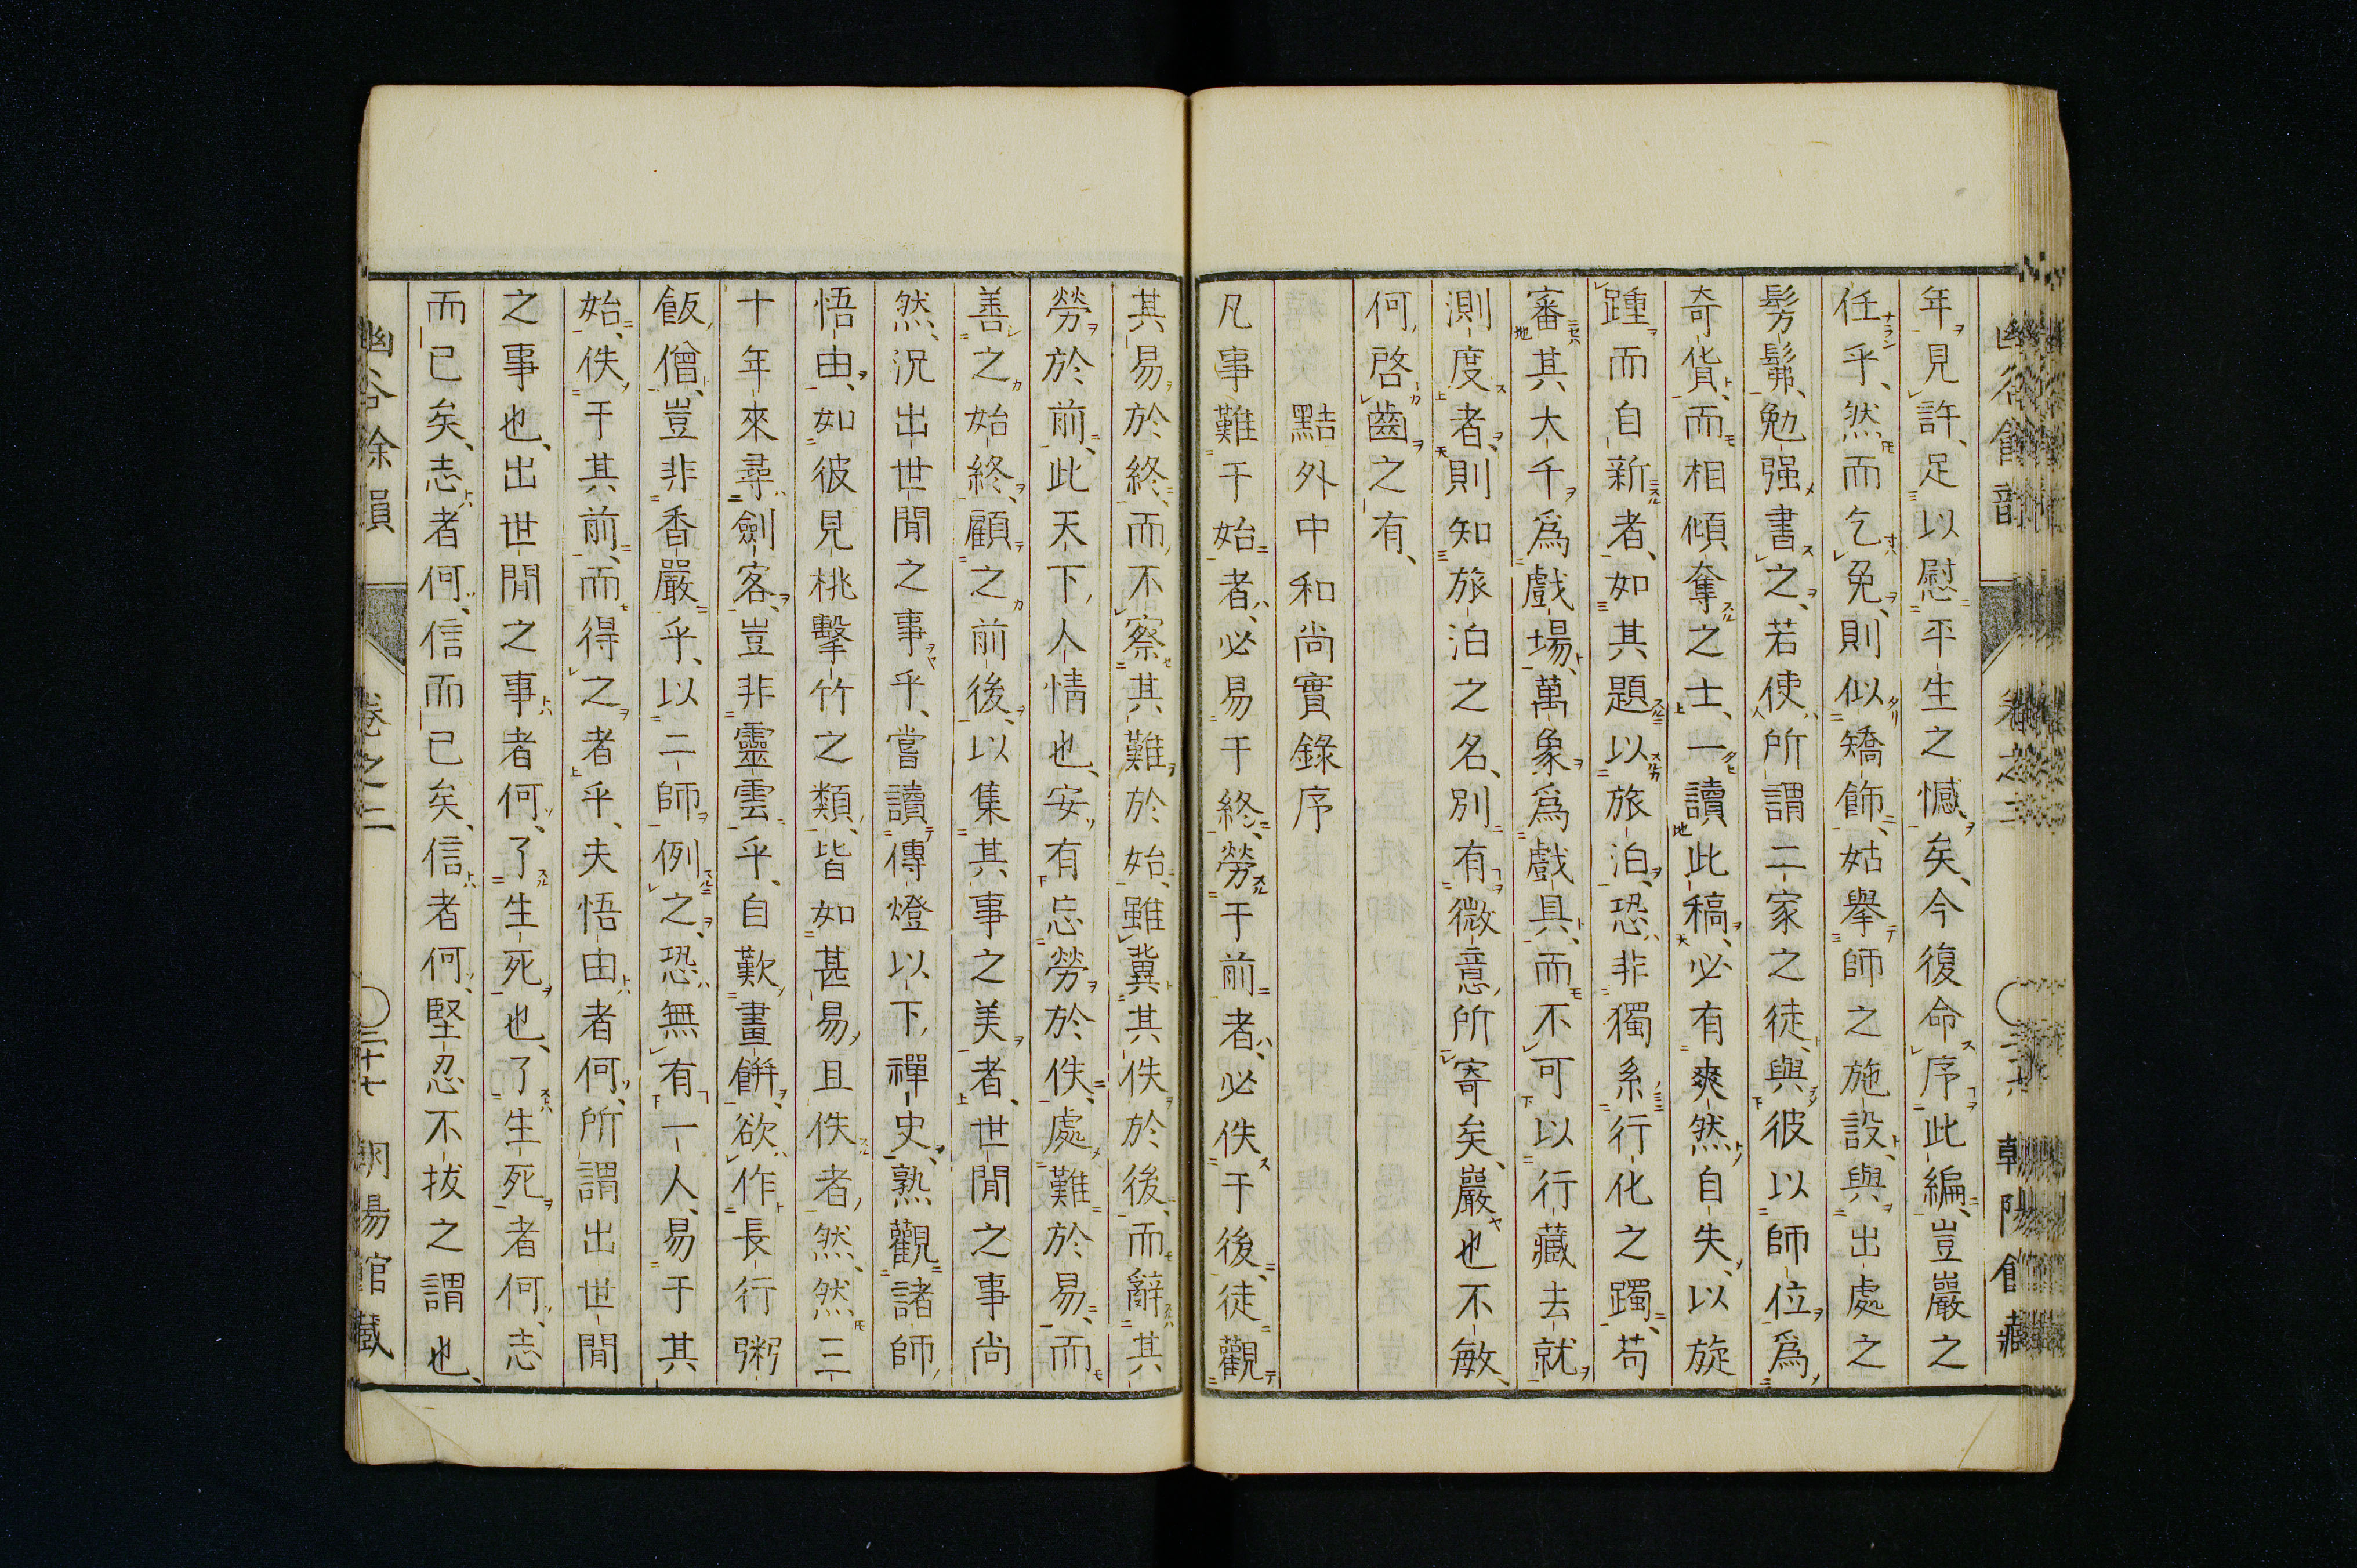 年見許、足以慰平生之憾矣、今復命序此編、豈巖之
任乎、然而乞免、則似矯飾、姑擧師之施設、與出處之
髣髴、勉强書之、若使所謂二家之徒、與彼以師位爲
奇貨、而相傾奪之士、一讀此稿、必有爽然自失、以旋
踵而自新者、如其題以旅泊、恐非獨系行化之躅、苟
審其大千爲戲場、萬象爲戲具、而不可以行藏去就
測度者、則知旅泊之名、別有微意所寄矣、巖也不敏、
何啓齒之有、
黠外中和尚實錄序
凡事難于始者、必易于終、勞于前者、必佚于後、徒觀
其易於終、而不察其難於始、雖冀其佚於後、而辭其
勞於前、此天下人情也、安有忘勞於佚、處難於易、而
善之始終、顧之前後、以集其事之美者、世閒之事尚
然、況出世閒之事乎、嘗讀傳燈以下禪史、熟觀諸師
悟由、如彼見桃擊竹之類、皆如甚易且佚者、然然三
十年來尋劍客、豈非靈雲乎、自歎畫餅、欲作長行粥
飯僧、豈非香嚴乎、以二師例之、恐無有一人易于其
始、佚于其前、而得之者乎、夫悟由者何、所謂出世閒
之事也、出世閒之事者何、了生死也、了生死者何、志
而已矣、志者何、信而已矣、信者何、堅忍不拔之謂也、
幽谷餘韻 卷之二 〇二十七 朝陽館藏